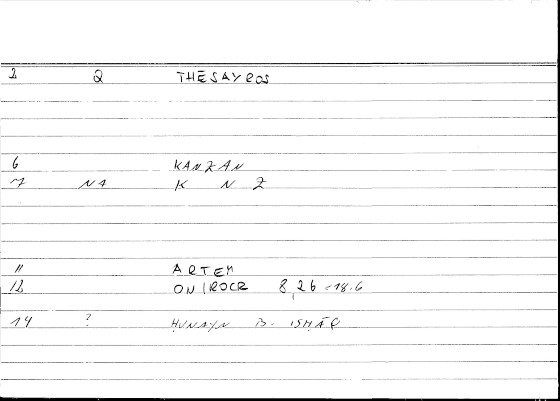 2 Q THESAYROS
6 KANZAN
7 NA K N Z
11 ARTEM
12 ONIROCR 8,26 = 18.6
14 ? ḤUNAYN B. ISḤĀQ